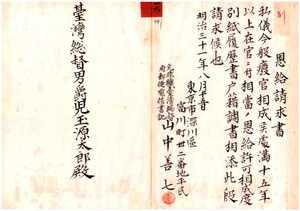 恩給請求書
私儀今般廢官相成候處滿十五年
以上在官ニ付相當ノ恩給許可相成度
別紙履歷書戶籍謄書相添此段
請求候也
明治三十一年八月十一日
東京市深川區
富川町廿二番地平民
元臺灣總督府
郵便電信書記
山中善七
臺灣總督男爵兒玉源太郎殿